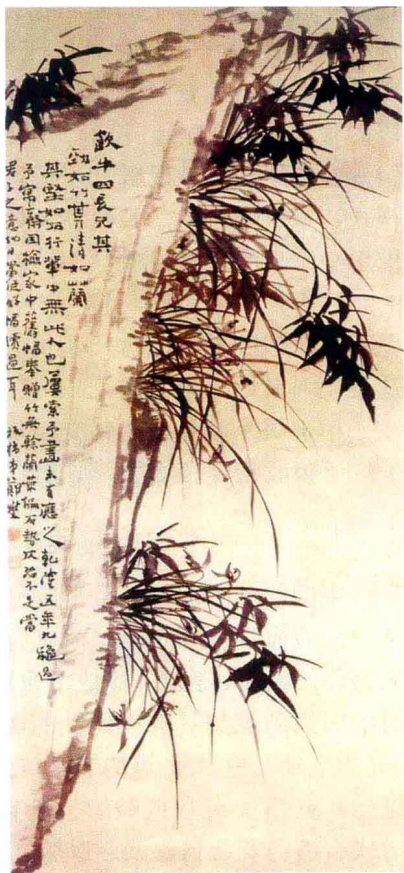 四長兄其
勁如竹其清如蘭
其堅如石行輩中無此人也屢索予畫未有應之乾隆五年九秋過
予寓齋因檢家中舊幅奉贈竹無餘蘭葉偏石勢仄不足當
君子之意他日當作好幅贖過耳 板橋弟鄭燮